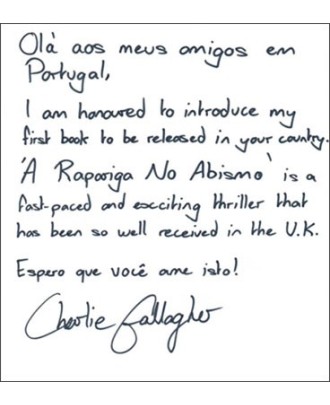 Olá aos meus amigos em
Portugal,
I am honoured to introduce my
first book to be released in your country.
'A Rapariga No Abismo' is a
fast-paced and exciting thriller that
has been so well received in the U.K.
Espero que você ame isto!
Charlie Gallagher